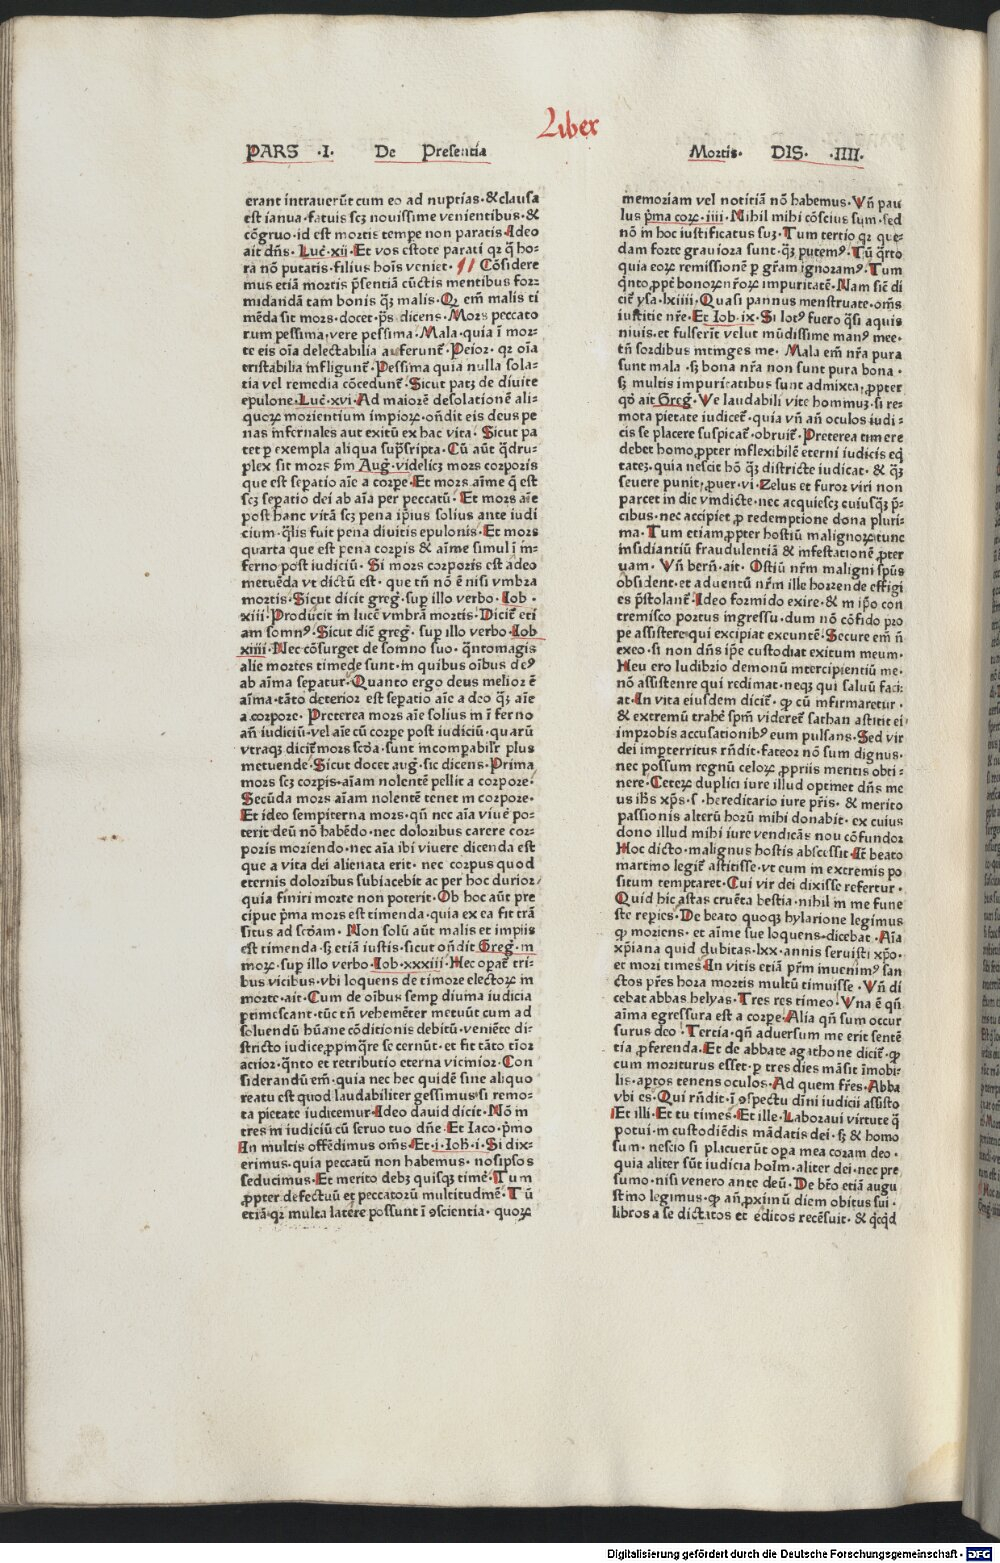 Liber
PARS ·I· De Presentia Mortis· DIS· ·IIII·
erant intrauerūt cum eo ad nuptias·&clausa
est ianua·fatuis scȝ nouissime venientibus·&
cōgruo·id est mortis tempe non paratis·Ideo
ait dn̄s·Luc̄·xii·Et vos estote parati qꝛ q̄ ho⸗
ra nō putatis·filius hoīs veniet· Cōsidere
mus etiā mortis p̄sentiā cūctis mentibus for⸗
midandā tam bonis qȝ malis·Qꝛ em̄ malis ti
mēda sit mors·docet·p̄s dicens·Mors peccato
rum pessima·vere pessima·Mala·quia ī mor⸗
te eis oīa delectabilia auferunt̄·Peior·qꝛ oīa
tristabilia īnfligunt̄·Pessima quia nulla sola⸗
tia vel remedia cōcedunt̄·Sicut patȝ de diuite
epulone·Luc̄·xvi·Ad maiorē desolationē ali⸗
quoꝝ morientium impioꝝ·on̄dit eis deus pe
nas infernales aut exitū ex hac vita·Sicut pa
tet p exempla aliqua sup̄scripta·Cū aūt q̄dru⸗
plex sit mors ꝑm Aug̃·videlicȝ mors corporis
que est sepatio aīe a corpe·Et mors aīme q̄ est
scȝ sepatio dei ab aīa per peccatū·Et mors aīe
post hanc vitā scȝ pena ip̄ius solius ante iudi
cium·q̄lis fuit pena diuitis epulonis·Et mors
quarta que est pena corpis & aīme simul ī in⸗
ferno post iudiciū·Si mors corporis est adeo
metuēda vt dictū est·que tn̄ nō ē nisi vmbra
mortis·Sicut dicit greg̃·sup illo verbo·Iob·
xiii·Producit in lucē vmbrā mortis·Dicit̄ eti
am somnꝰ·Sicut dic̄ greg̃·sup illo verbo·Iob
xiiii·Nec cōsurget de somno suo·q̄ntomagis
alie mortes timede sunt·in quibus oībus deꝰ
ab aīma sepatur·Quanto ergo deus melior ē
aīma·tāto deterior est sepatio aīe a deo qȝ aīe
a corpore·Preterea mors aīe solius in ī ferno
an̄ iudiciū·vel aīe cū corpe post iudiciū·quarū
vtraqȝ dicit̄ mors scd̄a·sunt incompabilr̄ plus
metuende·Sicut docet aug̃·sic dicens·Prima
mors scȝ corpis·aīam nolentē pellit a corpore·
Secūda mors aīam nolentē tenet in corpore·
Et ideo sempiterna mors·qn̄ nec aīa viue pō⸗
terit deū nō habēdo·nec doloribus carere cor⸗
poris moriendo·nec aīa ibi viuere dicenda est
que a vita dei alienata erit·nec corpus quod
eternis doloribus subiacebit ac per hoc durior
quia finiri morte non poterit·Ob hoc aūt pre
cipue p̄ma mors est timenda·quia ex ea fit trā
situs ad scd̄am·Non solū aūt malis et impiis
est timenda·sȝ etiā iustis·sicut on̄dit Greg̃·in
moꝝ·sup illo verbo·Iob·xxxiii·Hec opat̄ tri⸗
bus vicibus·vbi loquens de timore electoꝝ in
morte·ait·Cum de oībus semp diuina iudicia
ptimescant·tūc tn̄ vehemēter metuūt cum ad
soluendū hūane cōditionis debitū·veniēte di⸗
stricto iudice·ꝓpinq̄re se cernūt·et fit tāto tīor
acrior·q̄nto et retributio eterna vicinior·Con
siderandū em̄·quia nec hec quidē sine aliquo
reatu est quod laudabiliter gessimus·si remo⸗
ta pietate iudicemur·Ideo dauid dicit·Nō in
tres in iudiciū cū seruo tuo dn̄e·Et Iaco·p̄mo
In multis offēdimus om̄s·Et·i·Ioh̄·i·Si dix⸗
erimus·quia peccatū non habemus·nosipsos
seducimus·Et merito debȝ quisqȝ timē·Tum
ꝓpter defectuū et peccatorū multitudinē·Tū
etiā·qꝛ multa latēre possunt ī ꝯscientia·quoꝝ
memoriam vel notitiā nō habemus·Vn̄ pau
lus p̄ma coꝝ·iiii·Nihil mihi cōscius sum·sed
nō in hoc iustificatus suȝ·Tum tertio qꝛ que⸗
dam forte grauiora sunt·qȝ putemꝰ·Tū q̄rto
quia eoꝝ remissionē p gr̄am ignoramꝰ·Tum
q̄nto·ꝓpt̄ bonoꝝ nr̄oꝝ impuritatē·Nam sic̄ di
cit̄ ysa·lxiiii·Quasi pannus menstruate·om̄s
iustitie nr̄e·Et Iob·ix·Si lotꝰ fuero q̄si aquis
niuis·et fulserīt velut mūdissime manꝰ mee·
tn̄ sordibus intinges me·Mala em̄ nr̄a pura
sunt mala·sȝ bona nr̄a non sunt pura bona·
sȝ multis impuritatibus sunt admixta·ꝓpter
qd̄ ait Greg̃·Ve laudabili vite hominuȝ·si re⸗
mota pietate iudicet̄·quia vn̄ an̄ oculos iudi⸗
cis se placere suspicat̄·obruit̄·Preterea timere
debet homo·ꝓpter inflexibilē eterni iudicis eq̄
tateȝ·quia nescit hō qȝ districte iudicat·& qȝ
seuere punit·ꝓuer·vi·Zelus et furor viri non
parcet in die vindicte·nec acquiescȝ cuiusqȝ p̄⸗
cibus·nec accipiet ꝓ redemptione dona pluri⸗
ma·Tum etiam·ꝓpter hostiū malignoꝝ tunc
insidiantiū fraudulentiā & infestationē ꝓter
uam·Vn̄ bern̄·ait·Ostiū nr̄m maligni sp̄us
obsident·et aduentū nr̄m ille horrende effigi
es p̄stolant̄·Ideo formido exire·& in ip̄o con
tremisco portus ingressu·dum nō cōfido pro
pe assistere qui excipiat exeuntē·Secure em̄ n̄
exeo·si non dn̄s ip̄e custodiat exitum meum·
Heu ero ludibrio demonū intercipientiū me·
nō assistente qui redimat·neqȝ qui saluū faci⸗
at·In vita eiusdem dicit̄·ꝙ cū infirmaretur·
& extremū trahēs sp̄m·videret̄ sathan astitit ei
improbis accusationibꝰ eum pulsans·Sed vir
dei imperritus rn̄dit·fateor nō sum dignus·
nec possum regnū celoꝝ ꝓpriis meritis obti⸗
nere·Ceteꝝ duplici iure illud optinet dn̄s me
us ihs xp̄s·s·hereditario iure pr̄is·& merito
passionis alterū horū mihi donabit·ex cuius
dono illud mihi iure vendicās nō cōfundor
Hoc dicto·malignus hostis abscessit·It̄ beato
martino legit̄ astitisse·vt cum in extremis po
situm temptaret·Cui vir dei dixisse refertur·
Quid hic astas cruēta bestia·nihil in me fune
ste repies·De beato quoqȝ hylarione legimus
ꝙ moriens·et aīme sue loquens·dicebat·Aīa
xp̄iana quid dubitas·lxx·annis seruisti xp̄o·
et mori times·In vitis etiā pr̄m inuenimꝰ san
ctos pr̄es hora mortis multū timuisse·Vn̄ di
cebat abbas helyas·Tres res timeo·Vna ē qn̄
aīma egressura est a corpe·Alia qn̄ sum occur
surus deo·Tertia·qn̄ aduersum me erit sentē
tia ꝓferenda·Et de abbate agathone dicit̄·ꝙ
cum moriturus esset·p tres dies māsit īmobi⸗
lis·aptos tenens oculos·Ad quem fr̄es·Abba
vbi es·Qui rn̄dit·ī ꝯspectu dīni iudicii assisto
Et illi·Et tu times·Et ille·Laboraui virtute q̄
potui·in custodiēdis mādatis dei·sȝ & homo
sum·nescio si placuerūt opa mea coram deo·
quia aliter sūt iudicia hoīm·aliter dei·nec pre
sumo·nisi venero ante deū·De btō etiā augu
stino legimus·ꝙ an̄ ꝓximū diem obitus sui·
libros a se dictatos et editos recēsuit·& q̄cq̄d
Digitalisierung gefördert durch die Deutsche Forschungsgemeinschaft · DFG